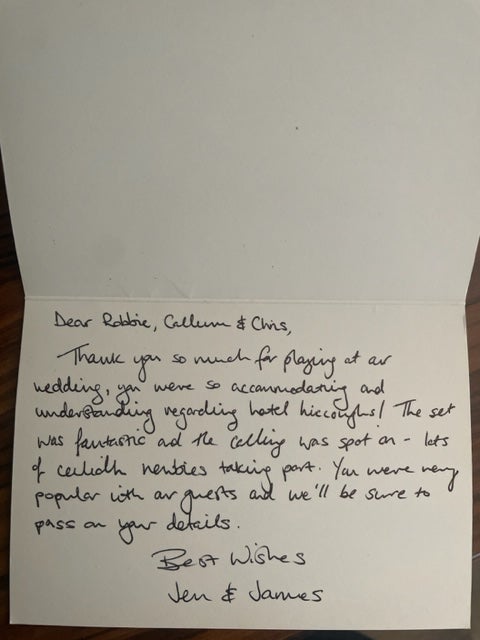 Dear Robbie, Callum & Chris,
Thank you so much for playing at our
wedding, you were so accommodating and
understanding regarding hotel hiccoughs! The set
was fantastic and the calling was spot on - lots
of ceilidh newbies taking part. You were very
popular with our guests and we'll be sure to
pass on your details.
Best Wishes
Jen & James